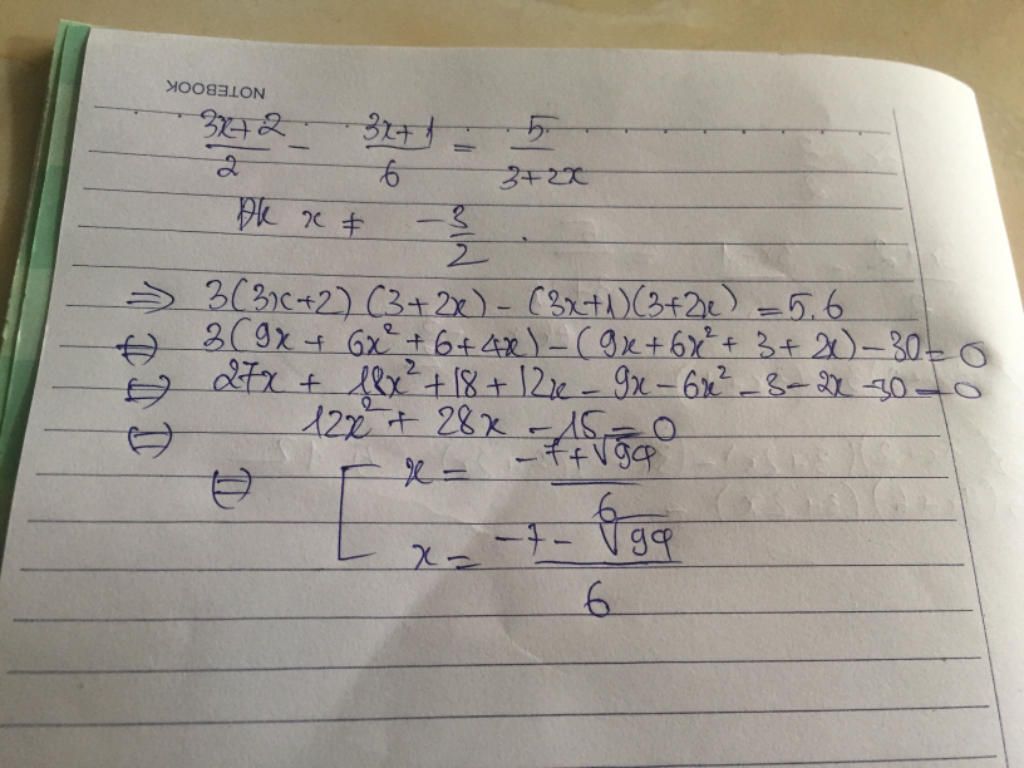 NOTEBOOK
3x+2/2 - 3x+1/6 = 5/3+2x
Đk x ≠ -3/2.
=> 3(3x+2)(3+2x) - (3x+1)(3+2x) = 5.6
<=> 3(9x + 6x² + 6 + 4x) - (9x + 6x² + 3 + 2x) - 30 = 0
<=> 27x + 18x² + 18 + 12x - 9x - 6x² - 3 - 2x - 30 = 0
<=> 12x² + 28x - 15 = 0
<=> [ x = -7+√94/6
x = -7-√94/6